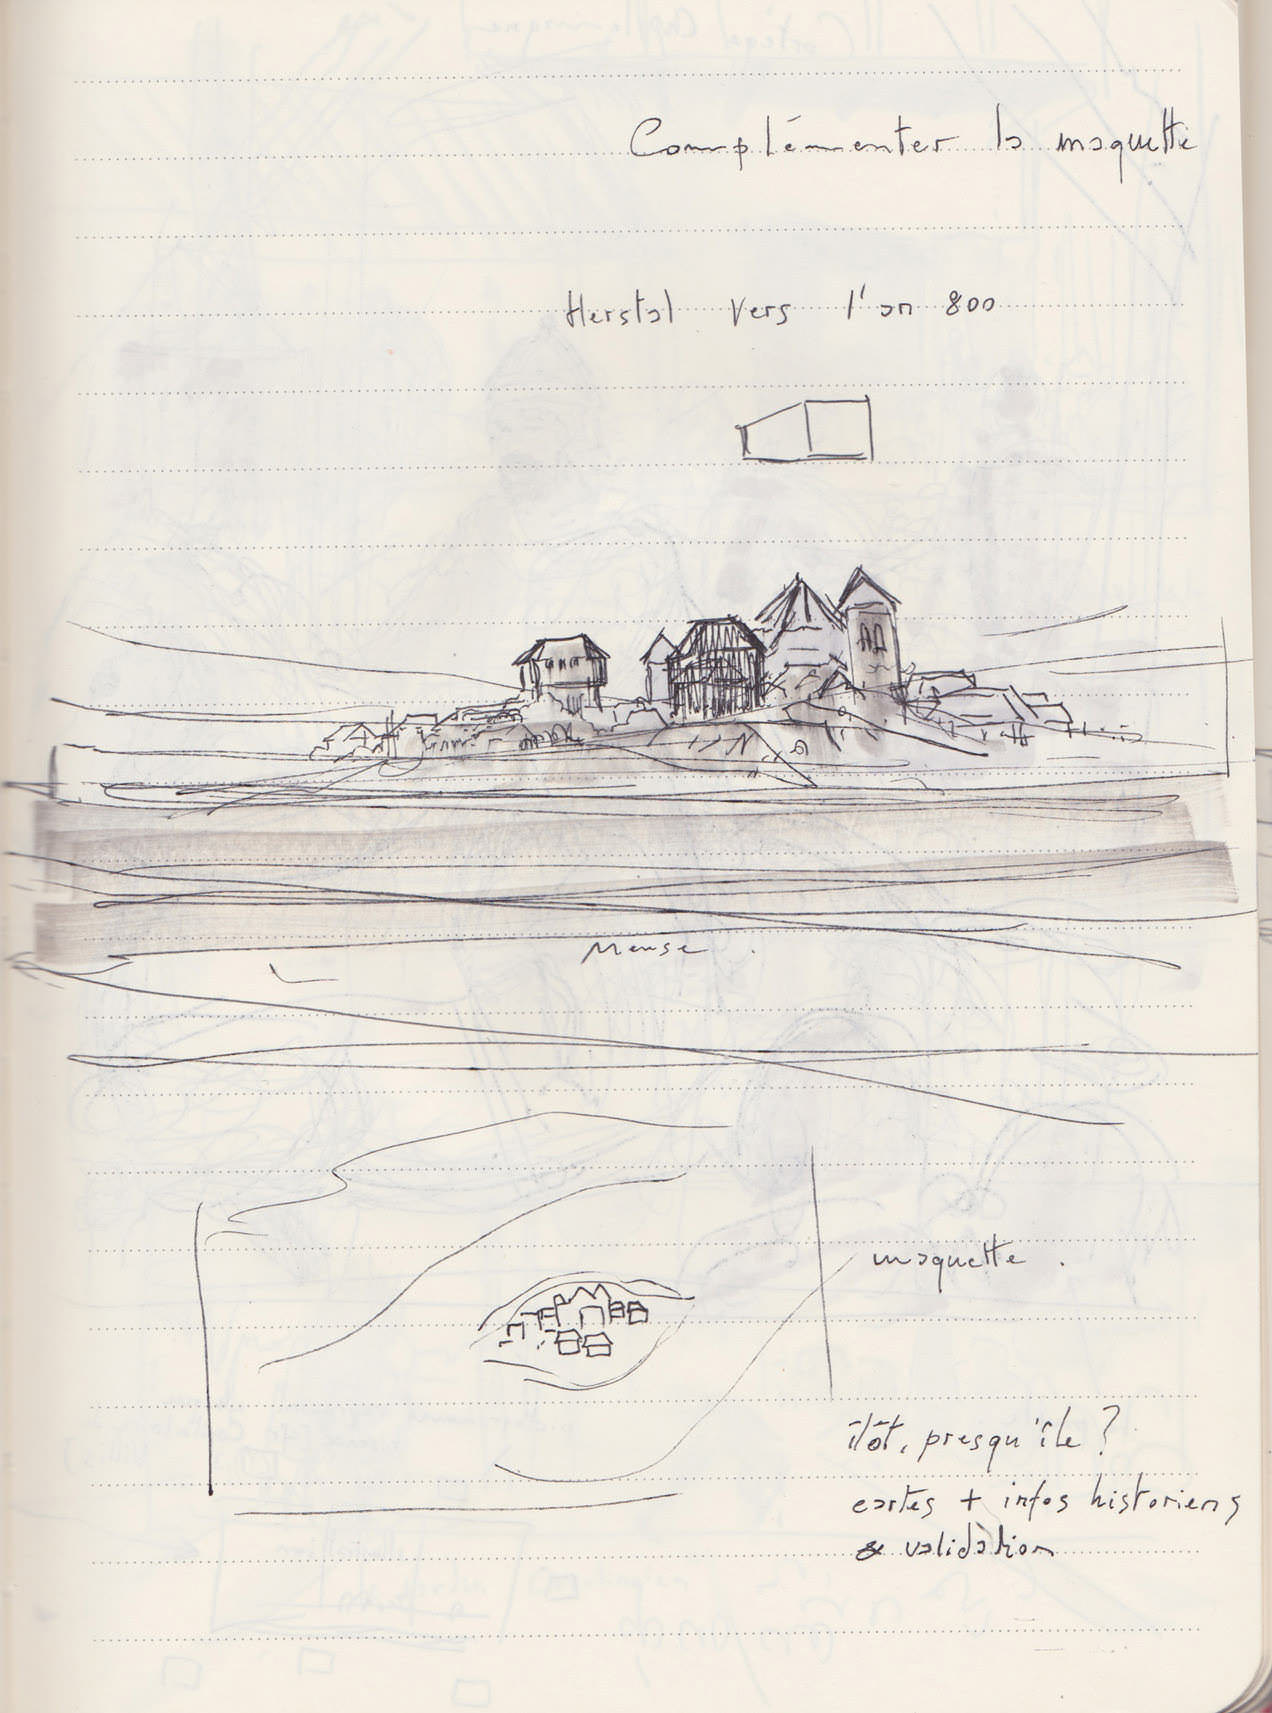 Complémenter la maquette
Herstal vers l'an 800
Meuse.
maquette.
îlôt, presqu'île ?
cartes + infos historiens
& validation